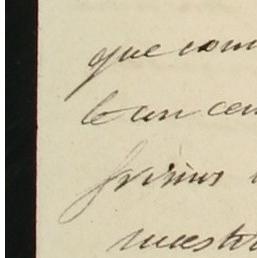 que com
le un cen
frimos
nuestr